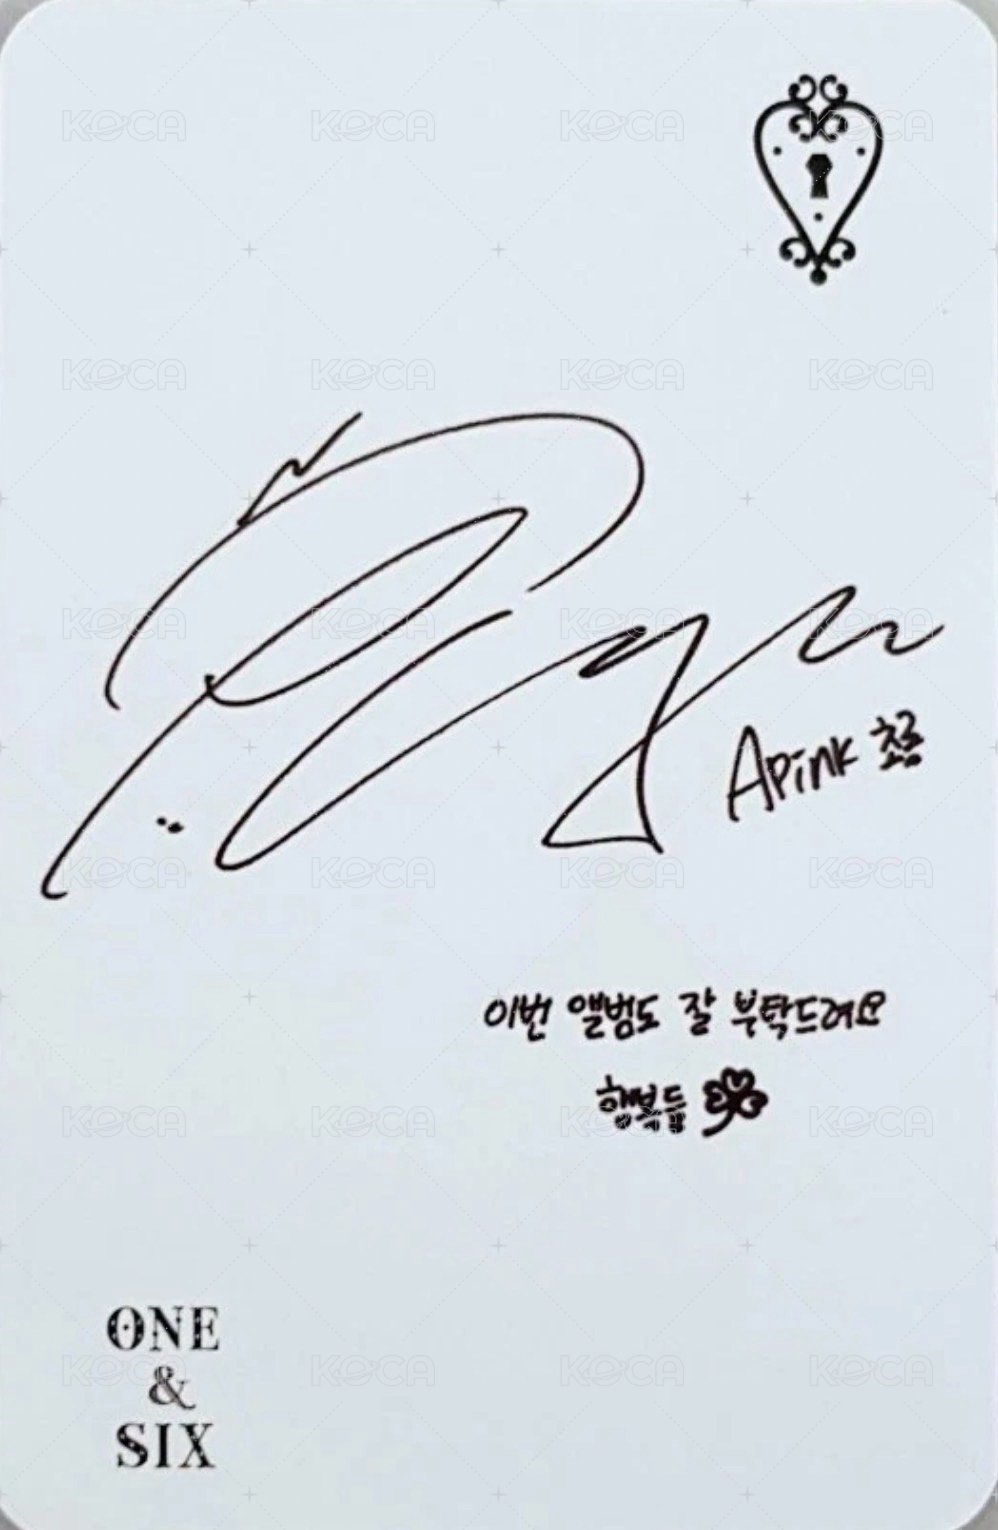 Apink 초롱
이번 앨범도 잘 부탁드려요
행복듬
ONE
&
SIX